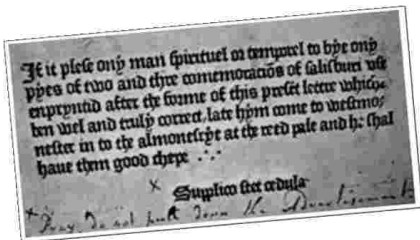 If it plese ony man spirituel or temporel to bye ony
pyes of two and thre comemoraciōs of salisburi vse
enpryntid after the forme of this preset lettre whiche
ben wel and truly correct, late hym come to westmo-
nester in to the almonesrye at the reed pale and he shal
haue them good chepe ∴
Supplico stet cedula
Pray, do not pull down the Advertisement